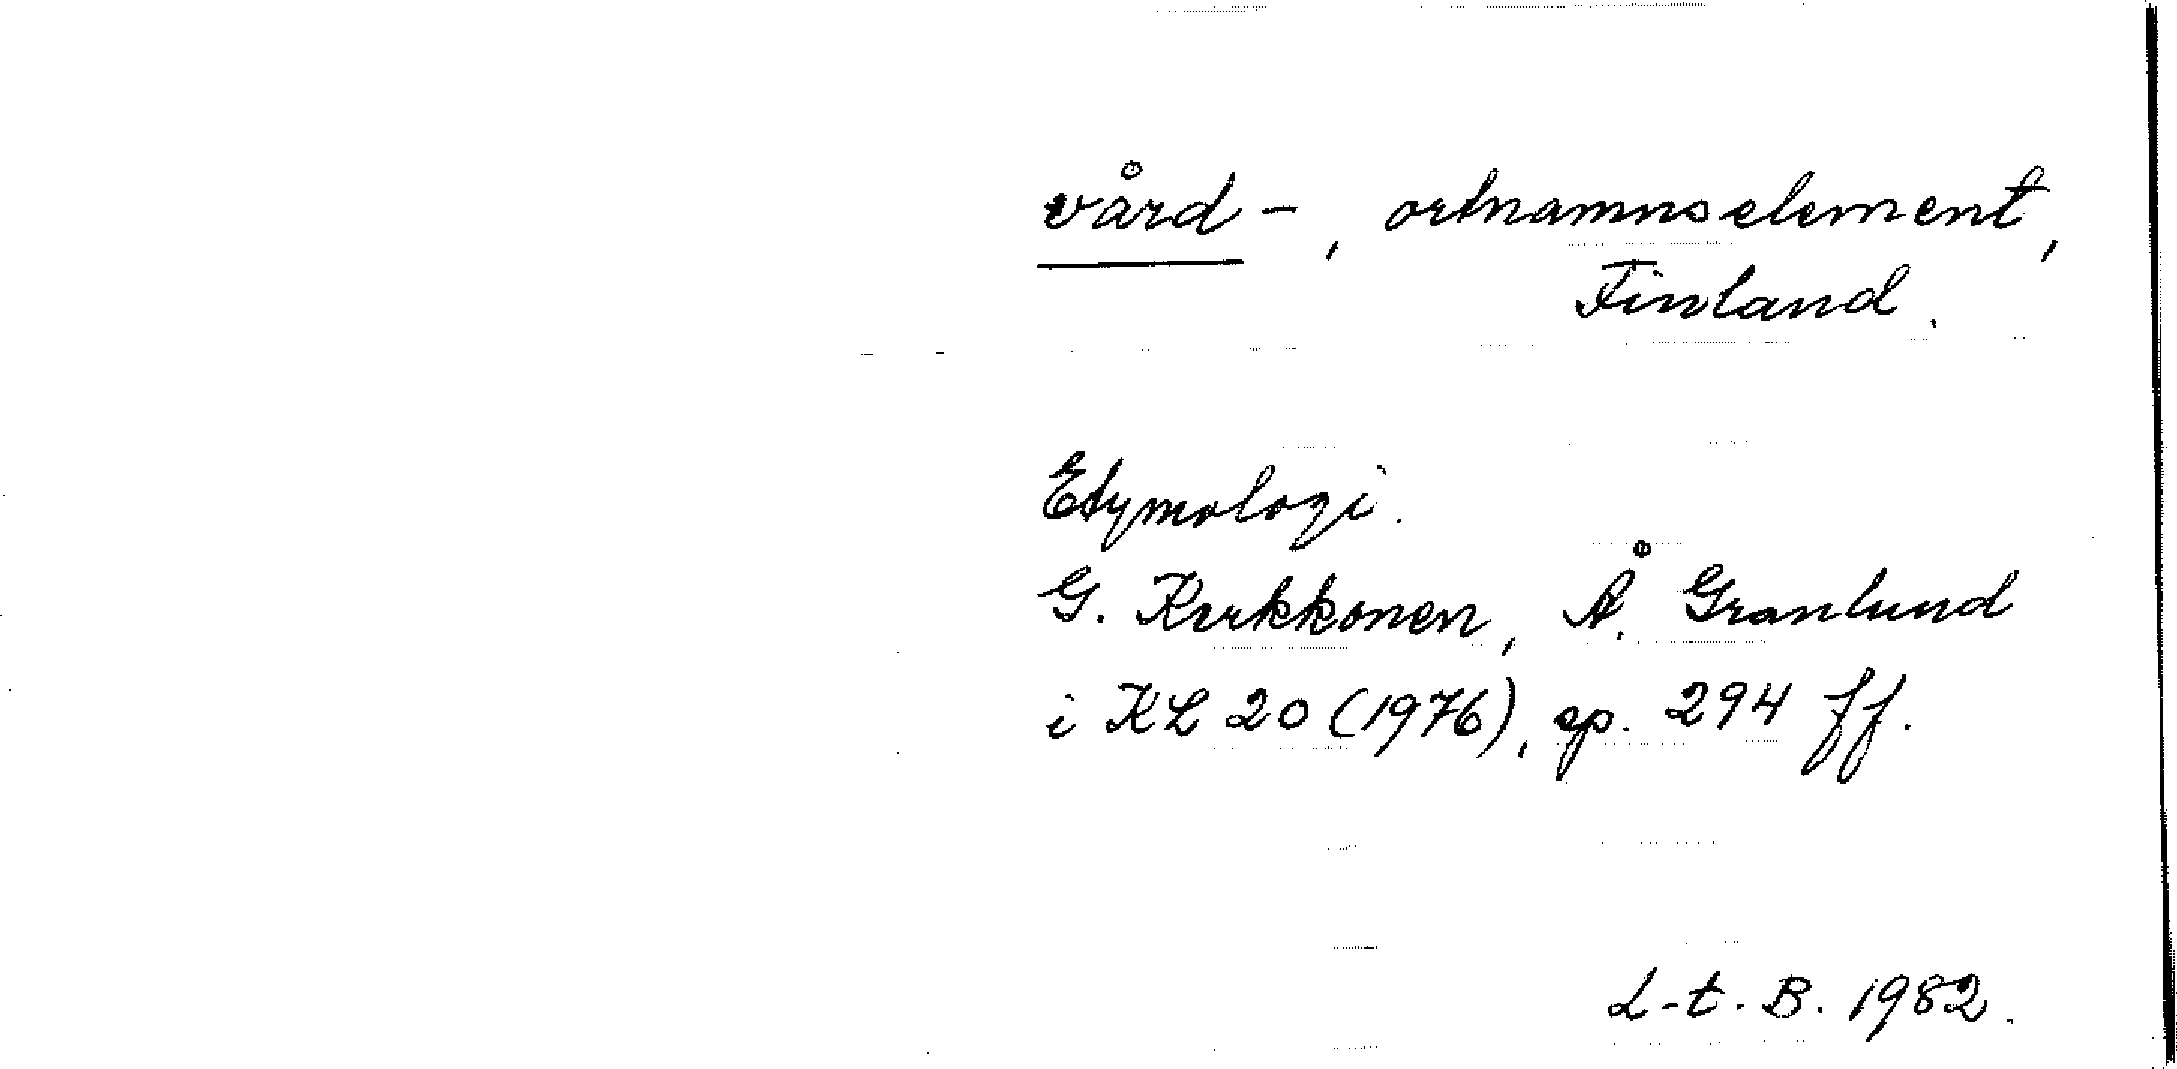 vård-, ortnamnselement,
Finland.
Etymologi.
G. Kerkkonen, Å. Granlund
i KL 20 (1976), sp. 294 ff.
L-t. B. 1982.